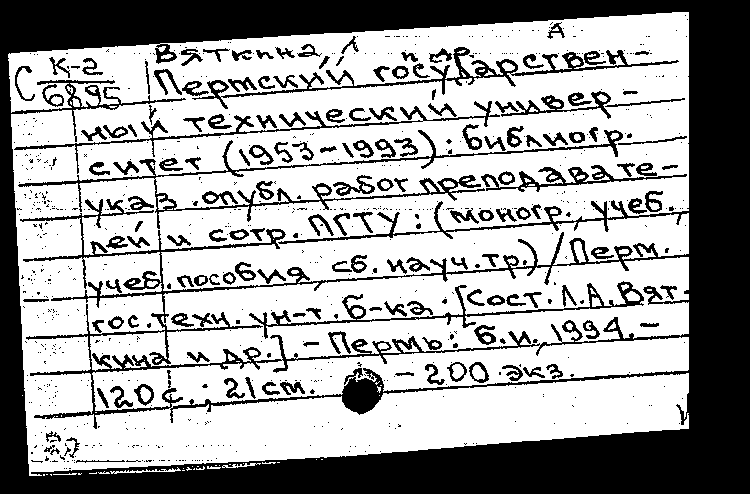 Вяткина, Л А
С К-2 и др
6895 Пермский государствен-
ный технический универ-
ситет (1953-1993): библиогр.
указ. опубл. работ преподавате-
лей и сотр. ПГТУ: (моногр., учеб.,
учеб. пособия, сб. науч. тр.) / Перм.
гос. техн. ун-т. Б-ка; [Сост. Л.А. Вят-
кина и др.]. - Пермь: Б.и., 1994. -
120 с.; 21 см. - 200 экз.